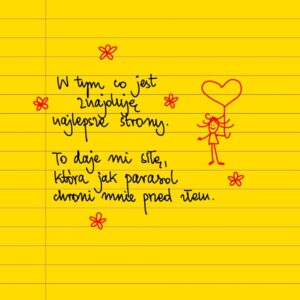 W tym co jest
znajduję
najlepsze strony.
To daje mi siłę,
która jak parasol
chroni mnie przed złem.